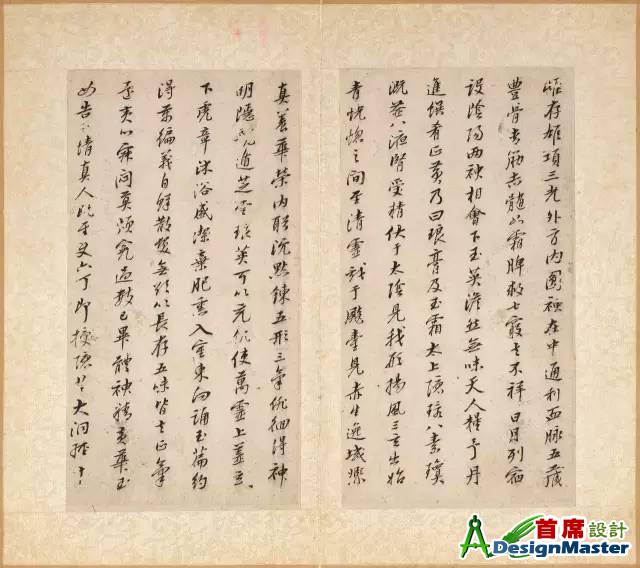 雄項三光外方內圓神在中通利血脉五藏
豐骨青筋赤髓如霜脾救七竅去不祥日月列宿
設陰陽兩神相會下玉英澹然無味天人糧子丹
進饌肴正黃乃曰琅膏及玉霜太上隱環八素瓊
溉益八液腎受精伏于太陰見我形揚風三玄出始
青恍惚之間至清靈戲于飈臺見赤生逸域熙
真養華榮內盼沉默鍊五形三氣徘徊得神
明隱龍遁芝雲琅英可以充飢使萬靈上蓋玄
下虎章沐浴盛潔棄肥薰入室東向誦玉篇約
得萬徧義自鮮散髮無欲以長存五味皆至正氣
還夷心寂悶勿煩過數已畢體神精黃華玉
女告子情真人既至使六丁即授隱芝大洞經十
首席設計
DesignMaster